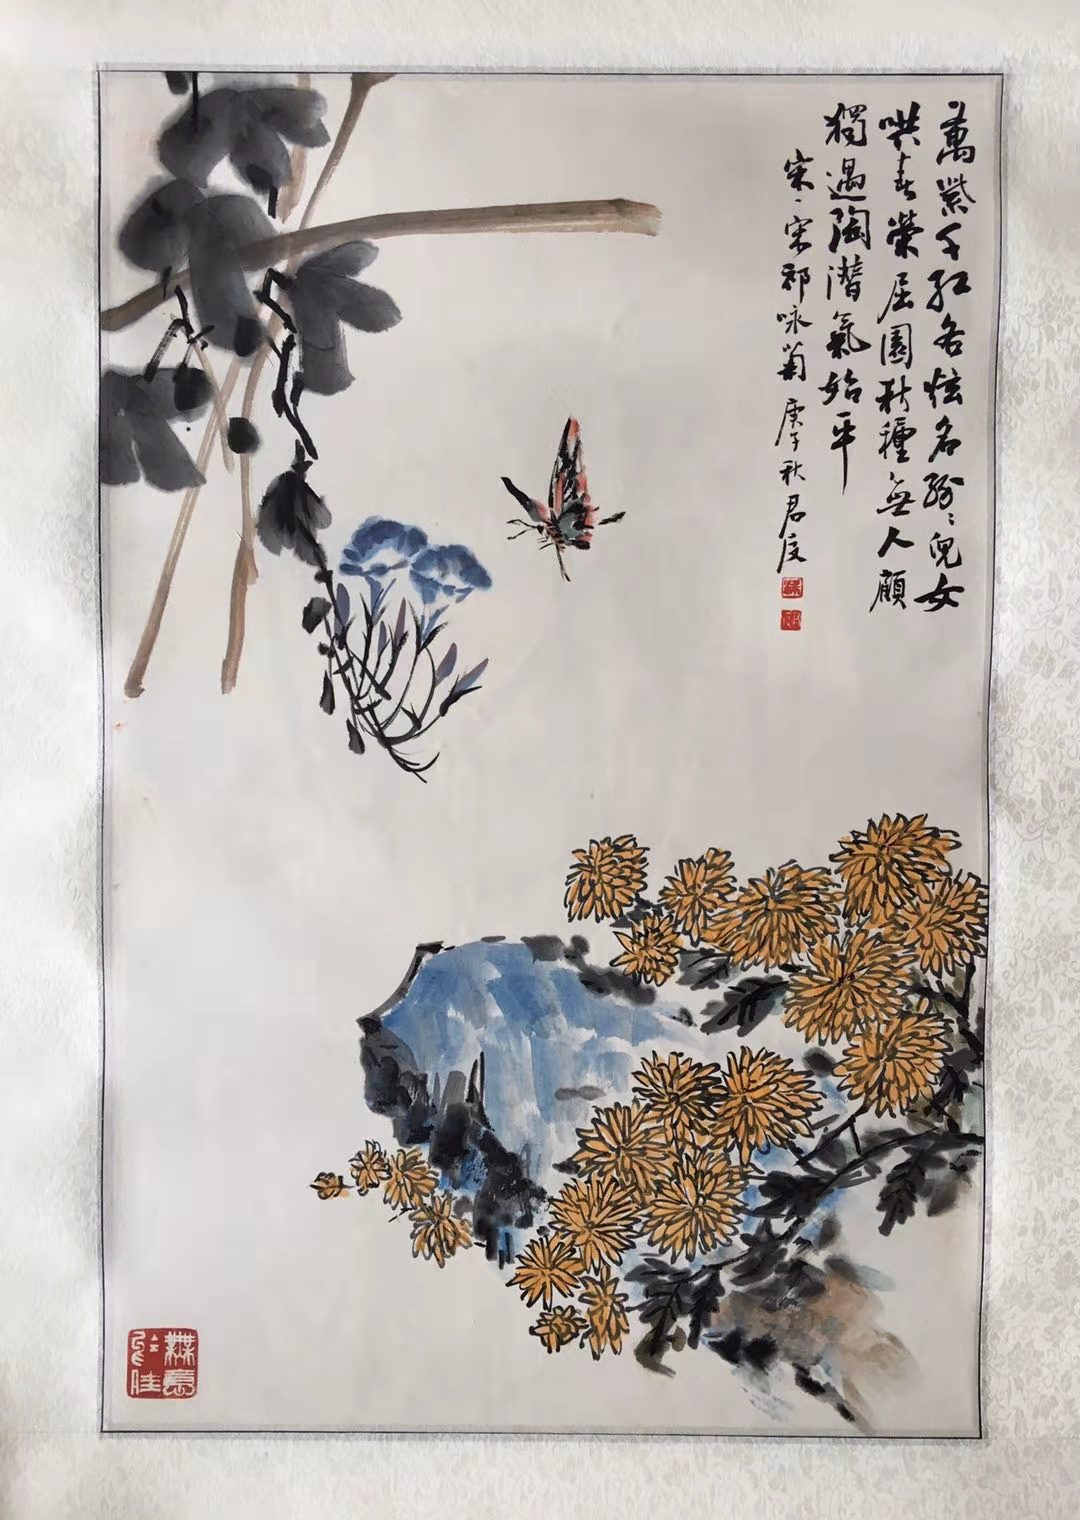 萬紫千红各炫名纷〻兒女
哄春榮屈園秋種無人顧
獨遇陶潜氣始平
宋〻宋祁咏菊 庚子秋君度